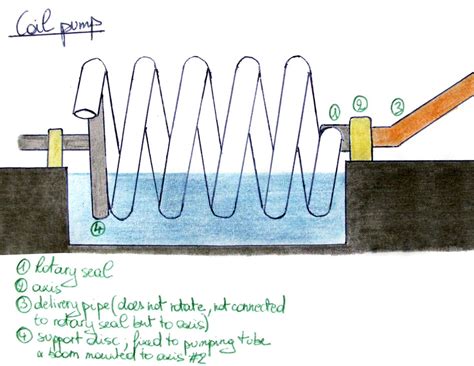 Coil pump
① ② ③
④
① Rotary seal
② axis
③ delivery pipe (does not rotate, not connected
to rotary seal but to axis)
④ support disc, fixed to pumping tube
a boom mounted to axis #2